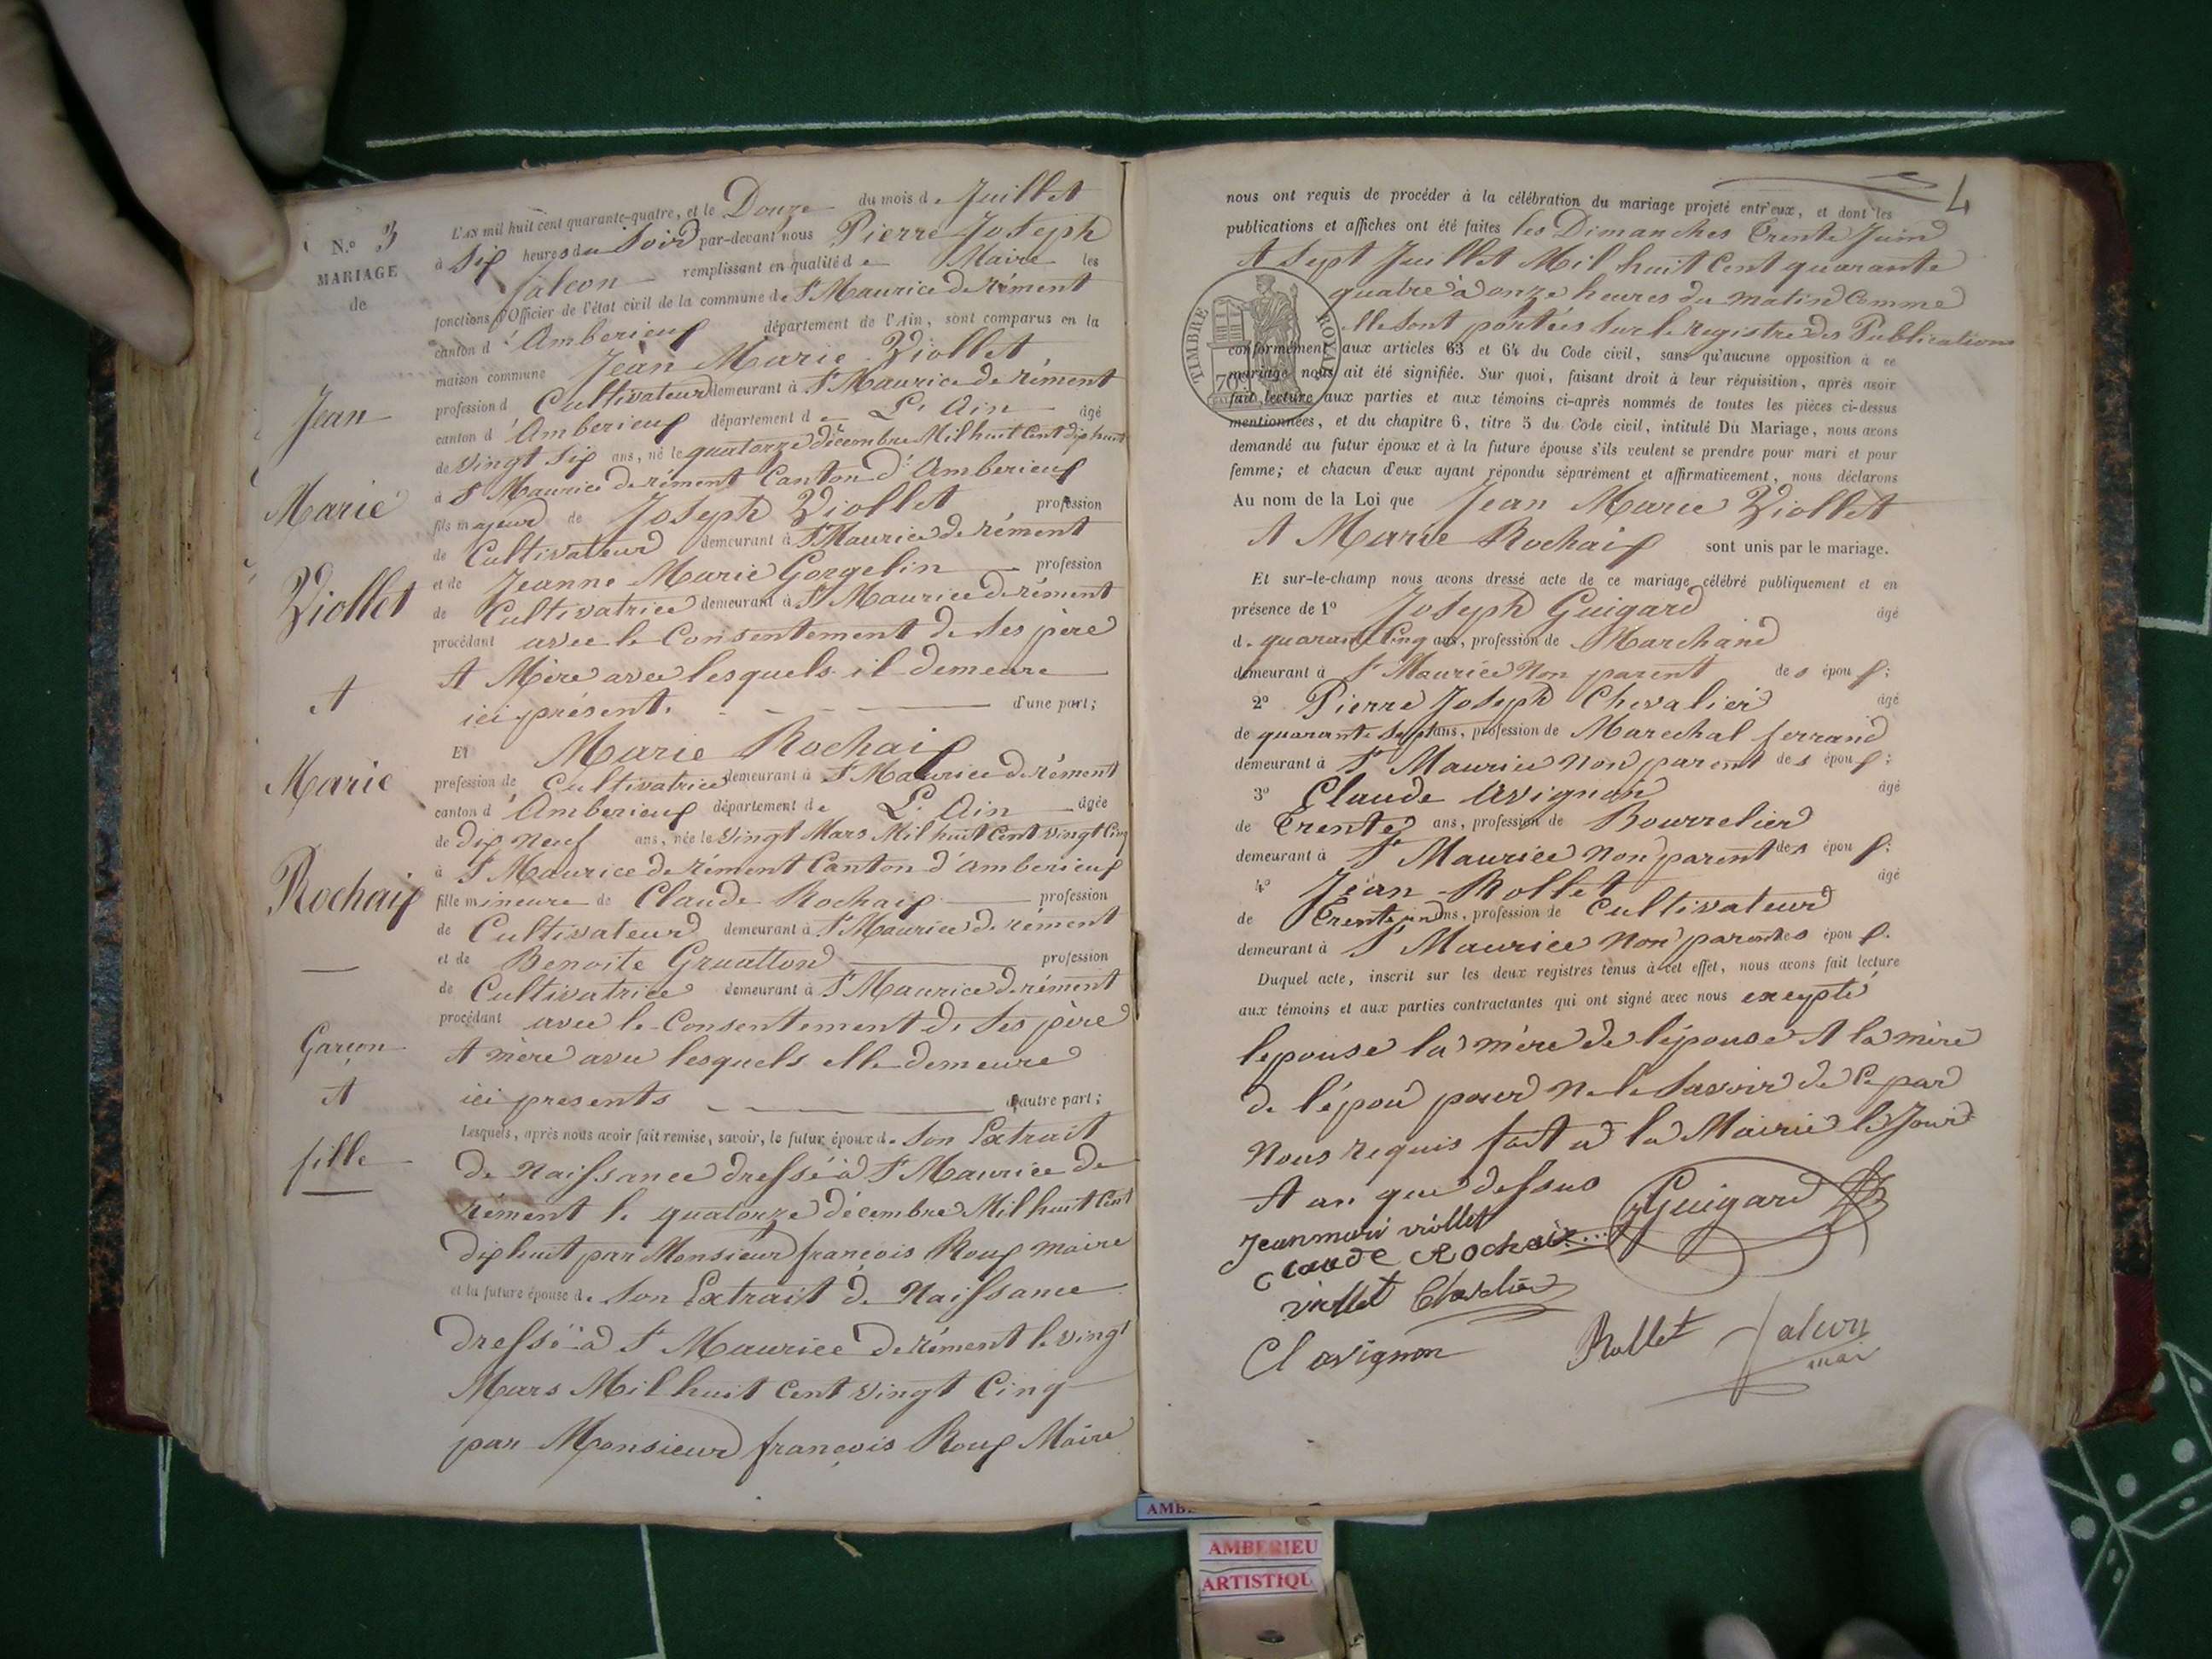 N.º 3
MARIAGE
de
Jean
Marie
Viollet
et
Marie
Rochaix
Garçon
et
fille
L'AN mil huit cent quarante-quatre, et le Douze du mois de Juillet
à Six heures du Soir par-devant nous Pierre Joseph
falcon remplissant en qualité de Maire les
fonctions d'Officier de l'état civil de la commune de St Maurice de rément
canton d'Amberieux département de l'Ain, sont comparus en la
maison commune Jean Marie Viollet,
profession d Cultivateur demeurant à St Maurice de rément
canton d'Amberieux département de L'Ain âgé
de vingt six ans, né le quatorze décembre Mil huit Cent dix huit
à St Maurice de rément Canton d'Amberieux
fils majeur de Joseph Viollet profession
de Cultivateur demeurant à St Maurice de rément
et de Jeanne Marie Gorgelin profession
de Cultivatrice demeurant à St Maurice de rément
procédant avec le Consentement de Ses père
et Mère avec lesquels il demeure
ici présent. d'une part;
Et Marie Rochaix
profession de Cultivatrice demeurant à St Maurice de rément
canton d'Amberieux département de L'Ain âgée
de dix neuf ans, née le vingt Mars Mil huit Cent vingt Cinq
à St Maurice de rément Canton d'Amberieux
fille mineure de Claude Rochaix profession
de Cultivateur demeurant à St Maurice de rément
et de Benoite Gruatton profession
de Cultivatrice demeurant à St Maurice de rément
procédant avec le Consentement de Ses père
et mère avec lesquels elle demeure
ici presents d'autre part;
Lesquels, après nous avoir fait remise, savoir, le futur époux de Son Extrait
de Naissance dressé à St Maurice de
rément le quatorze décembre Mil huit Cent
dix huit par Monsieur françois Roux maire
et la future épouse de Son Extrait de Naissance
dressé à St Maurice de rément le vingt
Mars Mil huit Cent vingt Cinq
par Monsieur françois Roux Maire
4
nous ont requis de procéder à la célébration du mariage projeté entr'eux, et dont les
publications et affiches ont été faites les Dimanches Trente Juin
et Sept Juillet Mil huit Cent quarante
quatre à onze heures du matin Comme
elle Sont portées Sur le registre des Publications
TIMBRE ROYAL
70
conformément aux articles 63 et 64 du Code civil, sans qu'aucune opposition à ce
mariage nous ait été signifiée. Sur quoi, faisant droit à leur réquisition, après avoir
fait lecture aux parties et aux témoins ci-après nommés de toutes les pièces ci-dessus
mentionnées, et du chapitre 6, titre 5 du Code civil, intitulé Du Mariage, nous avons
demandé au futur époux et à la future épouse s'ils veulent se prendre pour mari et pour
femme; et chacun d'eux ayant répondu séparément et affirmativement, nous déclarons
Au nom de la Loi que Jean Marie Viollet
et Marie Rochaix sont unis par le mariage.
Et sur-le-champ nous avons dressé acte de ce mariage célébré publiquement et en
présence de 1º Joseph Guigard âgé
d. quarante Cinq ans, profession de Marchand
demeurant à St Maurice Non parent des époux;
2º Pierre Joseph Chevalier âgé
de quarante Sept ans, profession de Marechal ferrand
demeurant à St Maurice Non parent des époux;
3º Claude Avignon âgé
de Trente ans, profession de Bourrelier
demeurant à St Maurice Non parent des époux;
4º Jean Rollet âgé
de Trente un ans, profession de Cultivateur
demeurant à St Maurice Non parent des époux.
Duquel acte, inscrit sur les deux registres tenus à cet effet, nous avons fait lecture
aux témoins et aux parties contractantes qui ont signé avec nous exeypté
lepouse la mère de lépouse et la mère
de l'épou pour Ne le Savoir de Ce par
Nous requis fait a la Mairie les Jour
et an que dessus
Guigard
Jeanmari viollet
Claude Rochaix
viollet Chevalier
Cl avignon Rollet falcon
mai
AMBERIEU
ARTISTIQU